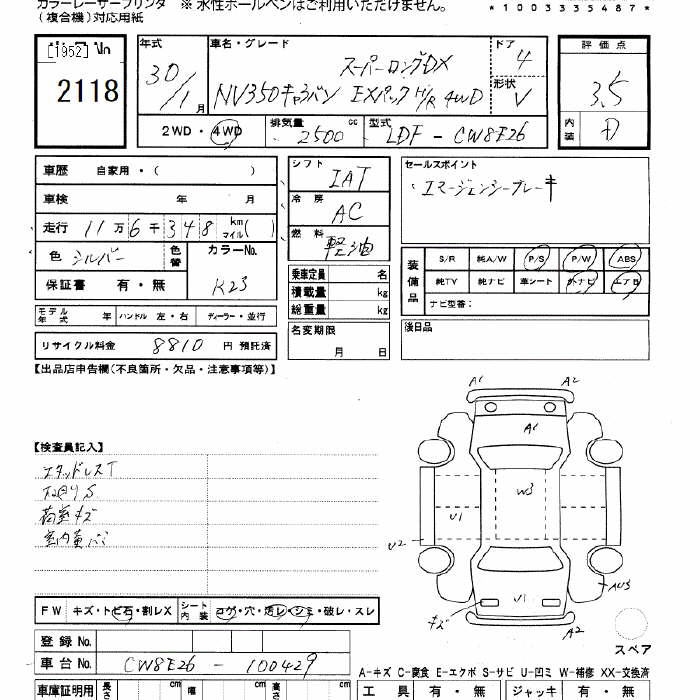 カラーレーザープリンタ ※ 水性ボールペンはご利用いただけません。
(複合機)対応用紙 *1003335487*
[1952] No
2118
年式 30/1月
車名・グレード スーパーロングDX
NV350キャラバン EXパック H/R 4WD
ドア 4
形状 V
評価点 3.5
内装 D
2WD・4WD 排気量 2500 cc 型式 LDF-CW8E26
車歴 自家用・( )
車検 年 月
走行 11万6千348 km マイル( )
色 シルバー 色替 カラーNo. K23
保証書 有・無
モデル年式 年 ハンドル 左・右 ディーラー・並行
リサイクル料金 8810 円 預託済
シフト IAT
冷房 AC
燃料 軽油
乗車定員 名
積載量 kg
総重量 kg
名変期限 月 日
セールスポイント
・エマージェンシーブレーキ
装備品 S/R 純A/W P/S P/W ABS
純TV 純ナビ 革シート 外ナビ エアB
ナビ型番:
後日品
【出品店申告欄(不良箇所・欠品・注意事項等)】
【検査員記入】
スタッドレスT
下回りS
荷室キズ
A1 A2
A1
W3
U1
U2
U1
AU3
キズ
A2
スペア
FW キズ・トビ石・割レX シート内装 コゲ・穴・汚レ・シミ・破レ・スレ
登録 No.
車台 No. CW8E26-100429
A-キズ C-腐食 E-エクボ S-サビ U-凹ミ W-補修 XX-交換済
車庫証明用 長さ cm cm cm
工具 有・無 ジャッキ 有・無